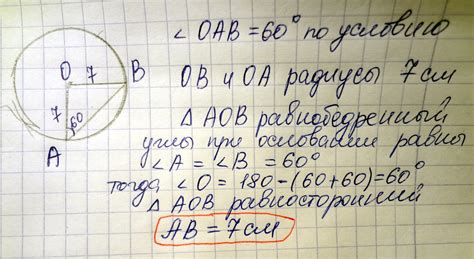 ∠OAB = 60° по условию
O 7 B
OB и OA радиусы 7 см
7 60
△AOB равнобедренный
углы при основании равны
A
∠A = ∠B = 60°
тогда ∠O = 180 - (60 + 60) = 60°
△AOB равносторонний
AB = 7 см